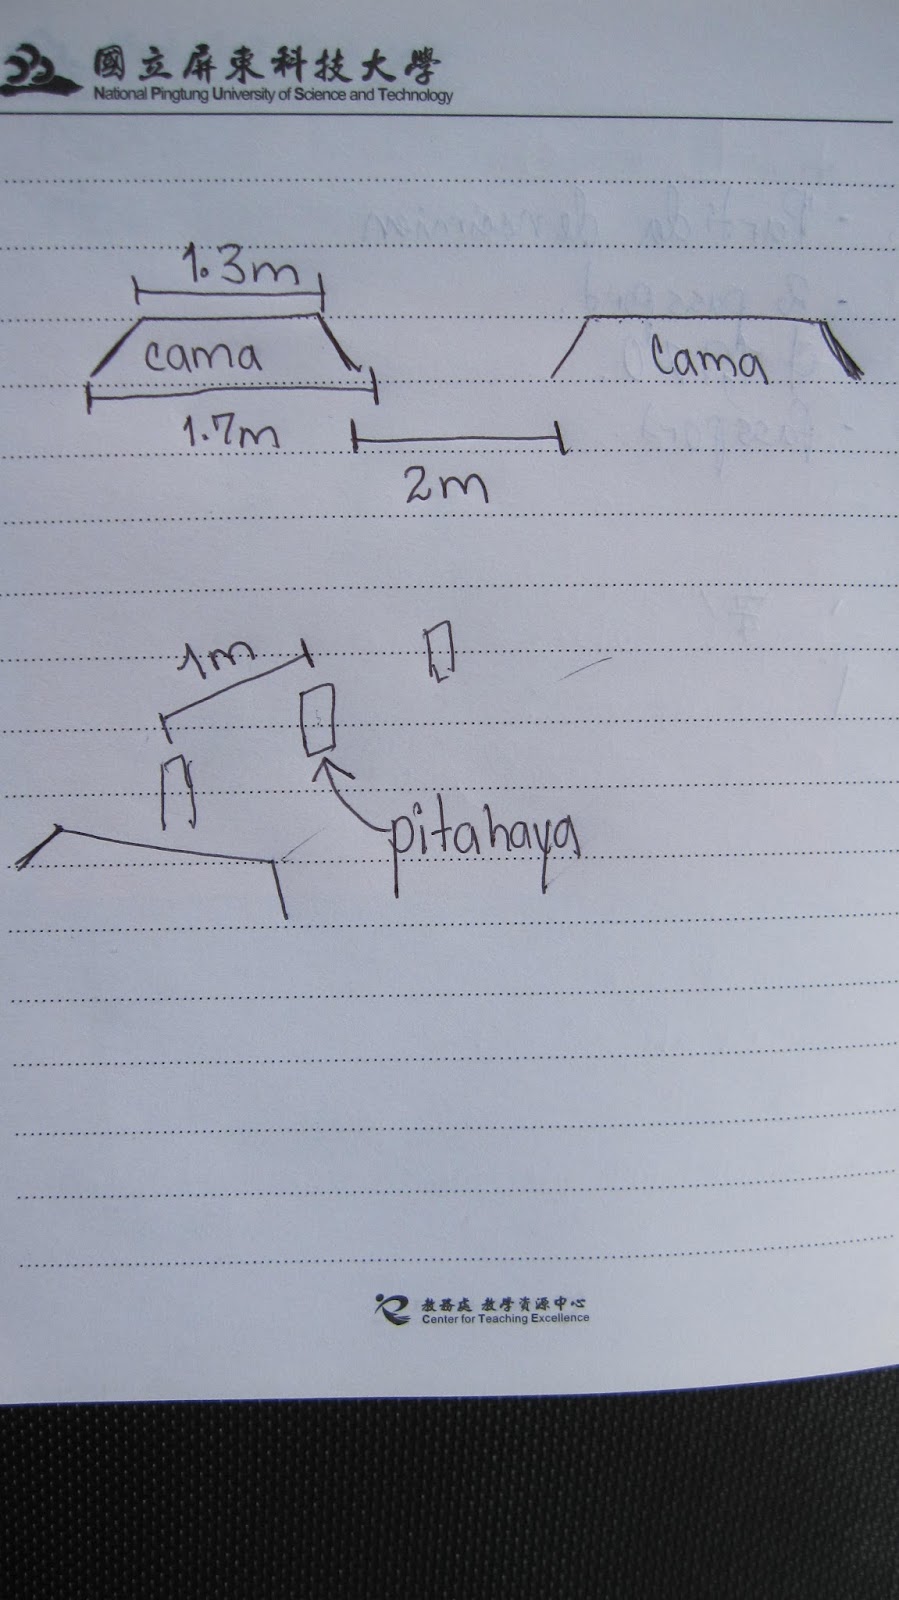 國立屏東科技大學
National Pingtung University of Science and Technology
1.3m
cama
cama
1.7m
2m
1m
pitahaya
教務處 教學資源中心
Center for Teaching Excellence